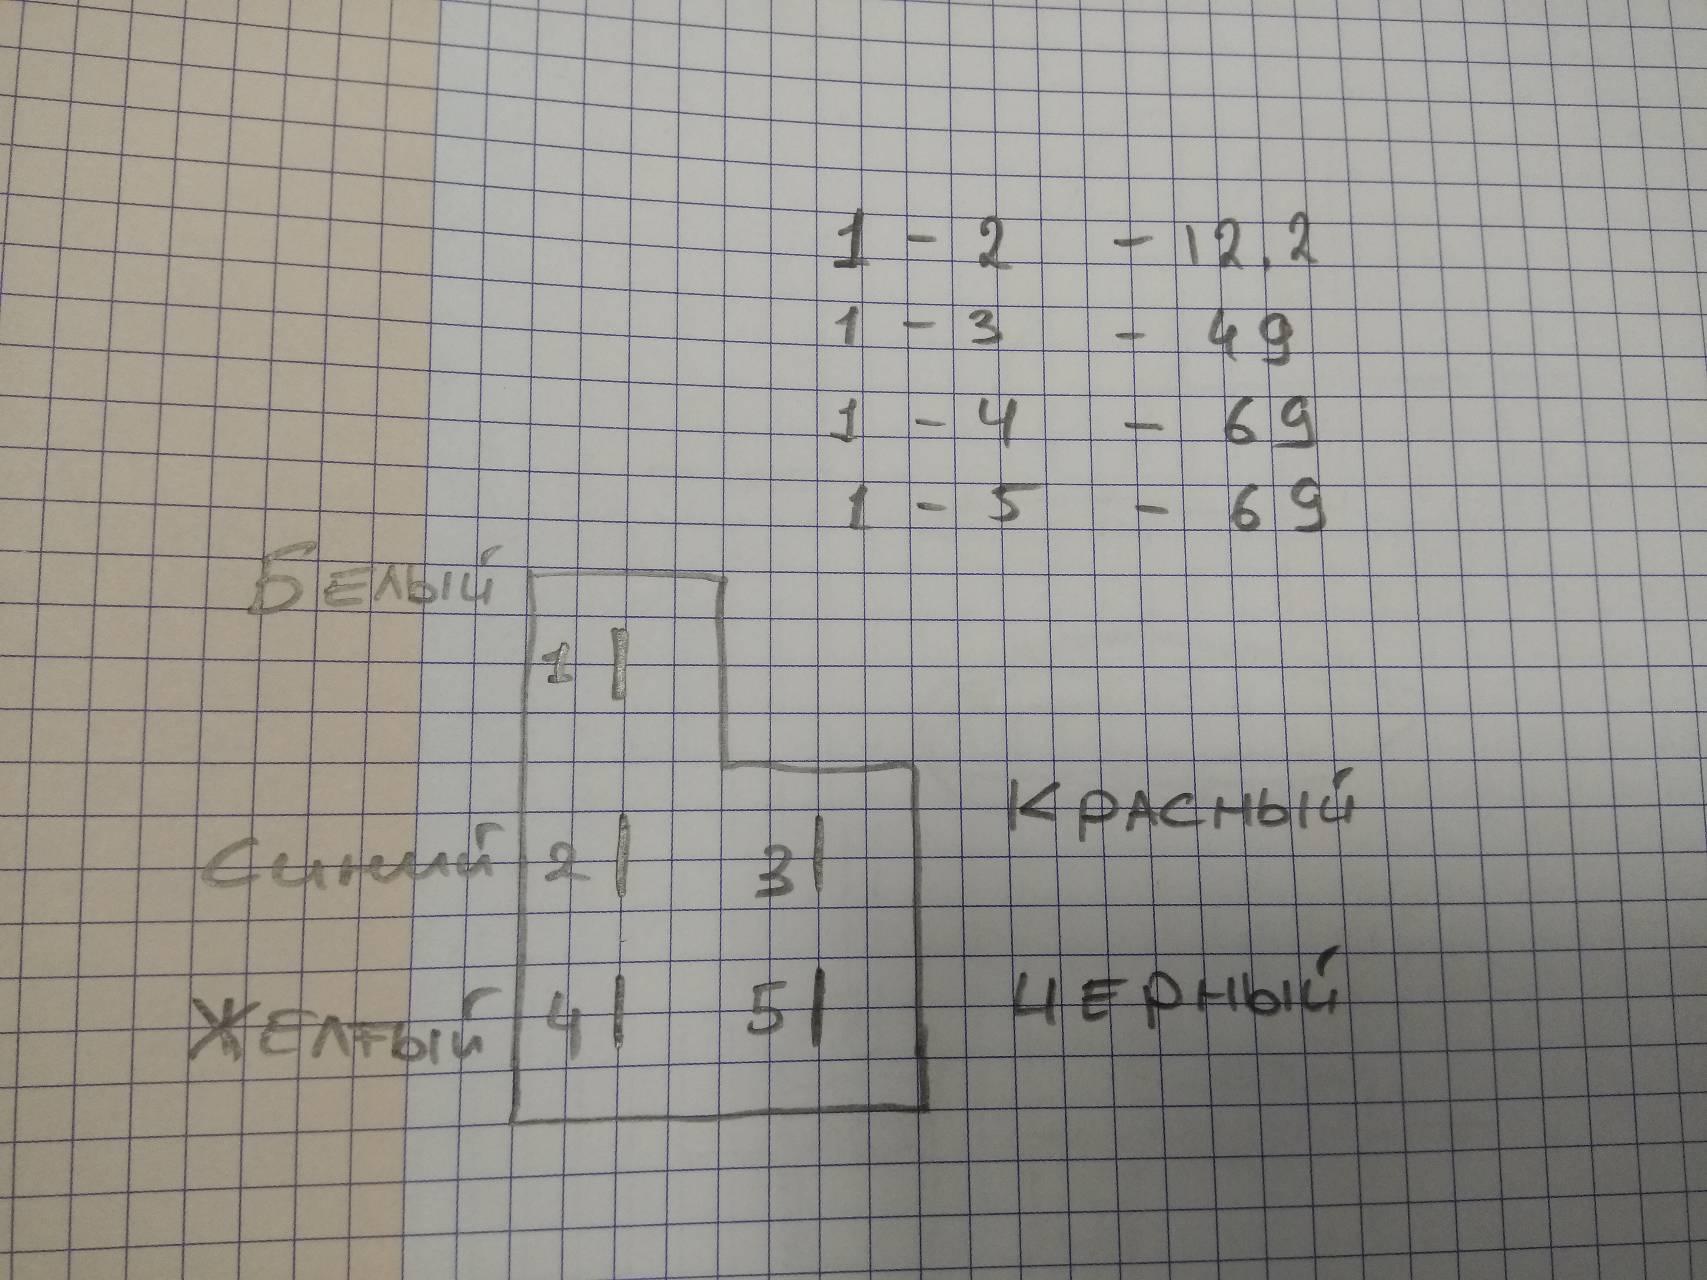 1 - 2 - 12.2
1 - 3 - 49
1 - 4 - 69
1 - 5 - 69
БЕЛЫЙ
1
КРАСНЫЙ
Синий 2 3
ЖЕЛТЫЙ 4 5 ЧЕРНЫЙ